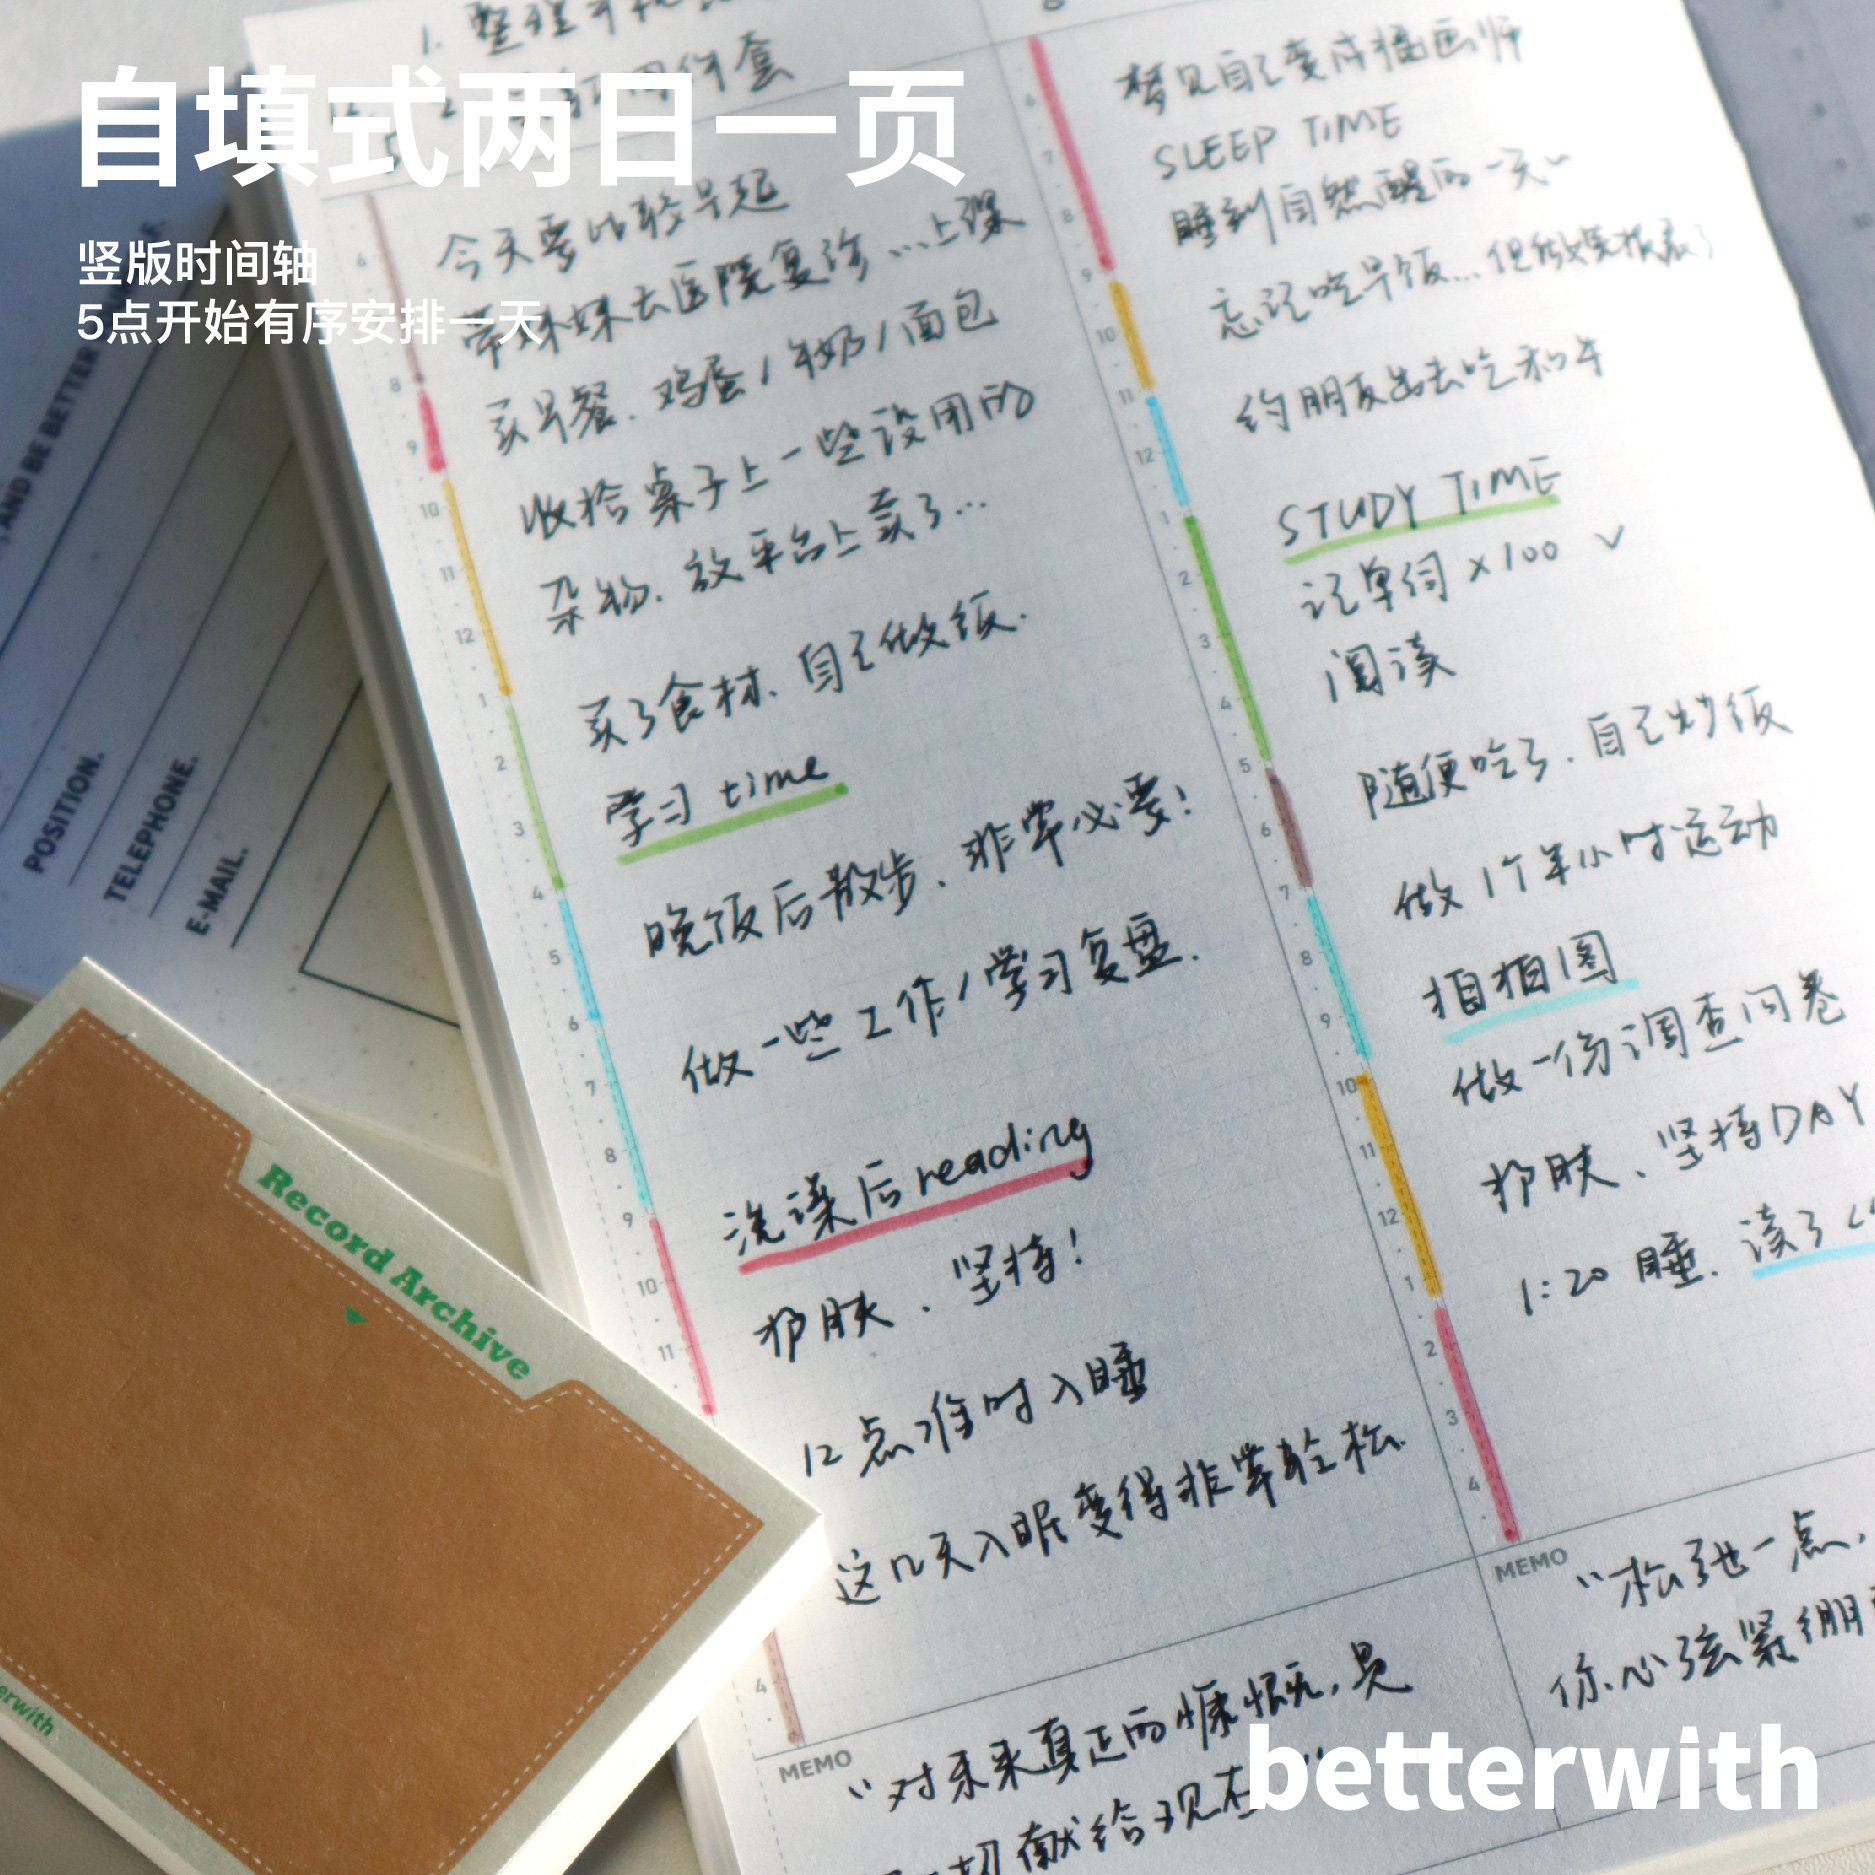 自填式两日一页
竖版时间轴
5点开始有序安排一天
1. 整理
今天要比较早起
带妹妹去医院复诊...上课
买早餐. 鸡蛋/牛奶/面包
收拾桌子上一些没用的
杂物. 放平台上卖了...
买了食材. 自己做饭.
学习 time
晚饭后散步. 非常必要!
做一些工作/学习复盘.
洗澡后reading
护肤. 坚持!
12点准时入睡
这几天入眠变得非常轻松.
MEMO
"对未来真正的慷慨, 是
献给现在
6
8
9
10
11
12
1
2
3
4
5
6
7
8
9
10
11
4
梦见自己变成插画师
SLEEP TIME
睡到自然醒的一天~
忘记吃早饭...但
约朋友出去吃和牛
STUDY TIME
记单词 x100 ✓
阅读
随便吃了. 自己炒饭
做1个半小时运动
拍拍图
做一份调查问卷
护肤、坚持DAY
1:20 睡. 读了
MEMO
"松弛一点,
你心弦紧绷
6
7
8
9
10
11
12
1
2
3
4
5
6
7
8
9
10
11
12
1
2
3
4
AND BE BETTER
POSITION.
TELEPHONE.
E-MAIL.
Record Archive
erwith
betterwith